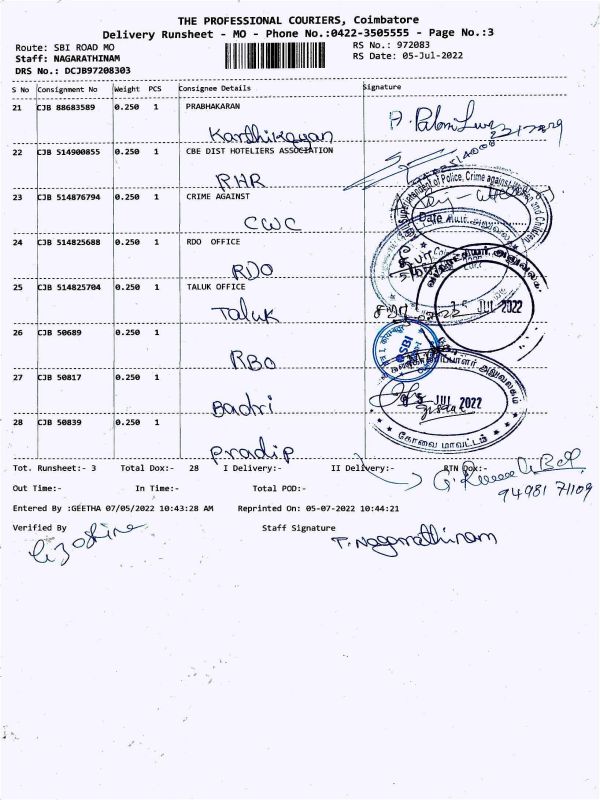 THE PROFESSIONAL COURIERS, Coimbatore
Delivery Runsheet - MO - Phone No.:0422-3505555 - Page No.:3
Route: SBI ROAD MO
Staff: NAGARATHINAM
DRS No.: DCJB97208303
RS No.: 972083
RS Date: 05-Jul-2022
S No Consignment No Weight PCS Consignee Details Signature
21 CJB 88683589 0.250 1 PRABHAKARAN
Karthikayan
22 CJB 514900855 0.250 1 CBE DIST HOTELIERS ASSOCIATION
RHR
23 CJB 514876794 0.250 1 CRIME AGAINST
CWC
24 CJB 514825688 0.250 1 RDO OFFICE
RDO
25 CJB 514825704 0.250 1 TALUK OFFICE
Taluk
26 CJB 50689 0.250 1
RBO
27 CJB 50817 0.250 1
Badri
28 CJB 50839 0.250 1
Pradip
Superintendent of Police, Crime against
and Children
Date
JUL 2022
SBI
JUL 2022
கோவை மாவட்டம்
Tot. Runsheet:- 3 Total Dox:- 28 I Delivery:- II Delivery:- RTN Dox:-
94981 71109
Out Time:- In Time:- Total POD:-
Entered By :GEETHA 07/05/2022 10:43:28 AM Reprinted On: 05-07-2022 10:44:21
Verified By Staff Signature
T. Nagarathinam